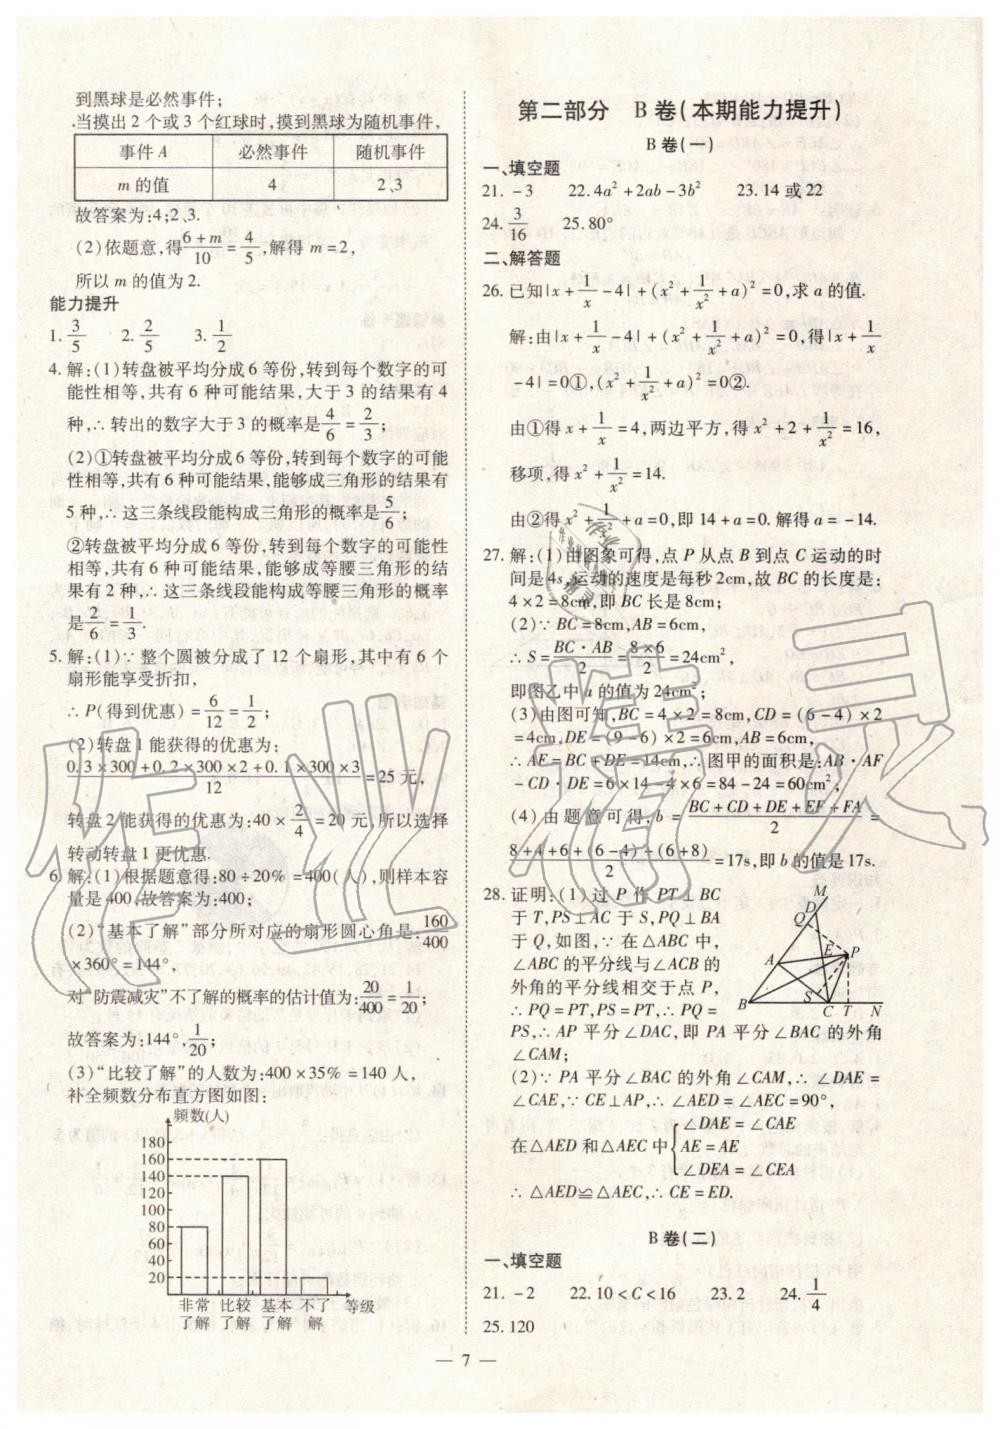 到黑球是必然事件;
当摸出 2 个或 3 个红球时,摸到黑球为随机事件,
事件 A 必然事件 随机事件
m 的值 4 2、3
故答案为:4;2、3.
(2)依题意,得 (6+m)/10 = 4/5,解得 m=2,
所以 m 的值为 2.
能力提升
1. 3/5 2. 2/5 3. 1/2
4. 解:(1)转盘被平均分成 6 等份,转到每个数字的可
能性相等,共有 6 种可能结果,大于 3 的结果有 4
种,∴ 转出的数字大于 3 的概率是 4/6 = 2/3;
(2)①转盘被平均分成 6 等份,转到每个数字的可能
性相等,共有 6 种可能结果,能够成三角形的结果有
5 种,∴ 这三条线段能构成三角形的概率是 5/6;
②转盘被平均分成 6 等份,转到每个数字的可能性
相等,共有 6 种可能结果,能够成等腰三角形的结
果有 2 种,∴ 这三条线段能构成等腰三角形的概率
是 2/6 = 1/3.
5. 解:(1)∵ 整个圆被分成了 12 个扇形,其中有 6 个
扇形能享受折扣,
∴ P(得到优惠) = 6/12 = 1/2;
(2)转盘 1 能获得的优惠为:
(0.3×300+0.2×300×2+0.1×300×3)/12 = 25 元,
转盘 2 能获得的优惠为:40 × 2/4 = 20 元,所以选择
转动转盘 1 更优惠.
6. 解:(1)根据题意得:80÷20% = 400(人),则样本容
量是 400,故答案为:400;
(2)“基本了解”部分所对应的扇形圆心角是: 160/400
×360° = 144°,
对“防震减灾”不了解的概率的估计值为: 20/400 = 1/20;
故答案为:144°, 1/20;
(3)“比较了解”的人数为:400×35% = 140 人,
补全频数分布直方图如图:
频数(人)
180
160
140
120
100
80
60
40
20
非常 比较 基本 不了 等级
了解 了解 了解 解
第二部分 B 卷(本期能力提升)
B 卷(一)
一、填空题
21. -3 22. 4a²+2ab-3b² 23. 14 或 22
24. 3/16 25. 80°
二、解答题
26. 已知|x + 1/x - 4| + (x² + 1/x² + a)² = 0,求 a 的值.
解:由|x + 1/x - 4| + (x² + 1/x² + a)² = 0,得|x + 1/x
-4| = 0①,(x² + 1/x² + a)² = 0②.
由①得 x + 1/x = 4,两边平方,得 x² + 2 + 1/x² = 16,
移项,得 x² + 1/x² = 14.
由②得 x² + 1/x² + a = 0,即 14 + a = 0. 解得 a = -14.
27. 解:(1)由图象可得,点 P 从点 B 到点 C 运动的时
间是 4s,运动的速度是每秒 2cm,故 BC 的长度是:
4×2 = 8cm,即 BC 长是 8cm;
(2)∵ BC = 8cm,AB = 6cm,
∴ S = (BC·AB)/2 = (8×6)/2 = 24cm²,
即图乙中 a 的值为 24cm²;
(3)由图可知,BC = 4×2 = 8cm,CD = (6-4)×2
= 4cm,DE = (9-6)×2 = 6cm,AB = 6cm,
∴ AE = BC + DE = 14cm,∴ 图甲的面积是:AB·AF
-CD·DE = 6×14-4×6 = 84-24 = 60cm²,
(4)由题意可得,b = (BC+CD+DE+EF+FA)/2 =
(8+4+6+(6-4)+(6+8))/2 = 17s,即 b 的值是 17s.
28. 证明:(1)过 P 作 PT⊥BC
于 T,PS⊥AC 于 S,PQ⊥BA
于 Q,如图,∵ 在△ABC 中,
∠ABC 的平分线与∠ACB 的
外角的平分线相交于点 P,
∴ PQ = PT,PS = PT,∴ PQ =
PS,∴ AP 平分∠DAC,即 PA 平分∠BAC 的外角
∠CAM;
M
D
Q
E
P
A
S
B C T N
(2)∵ PA 平分∠BAC 的外角∠CAM,∴ ∠DAE =
∠CAE,∵ CE⊥AP,∴ ∠AED = ∠AEC = 90°,
∠DAE = ∠CAE
在△AED 和△AEC 中 { AE = AE
∠DEA = ∠CEA
∴ △AED≌△AEC,∴ CE = ED.
B 卷(二)
一、填空题
21. -2 22. 10<C<16 23. 2 24. 1/4
25. 120
— 7 —
作业精灵